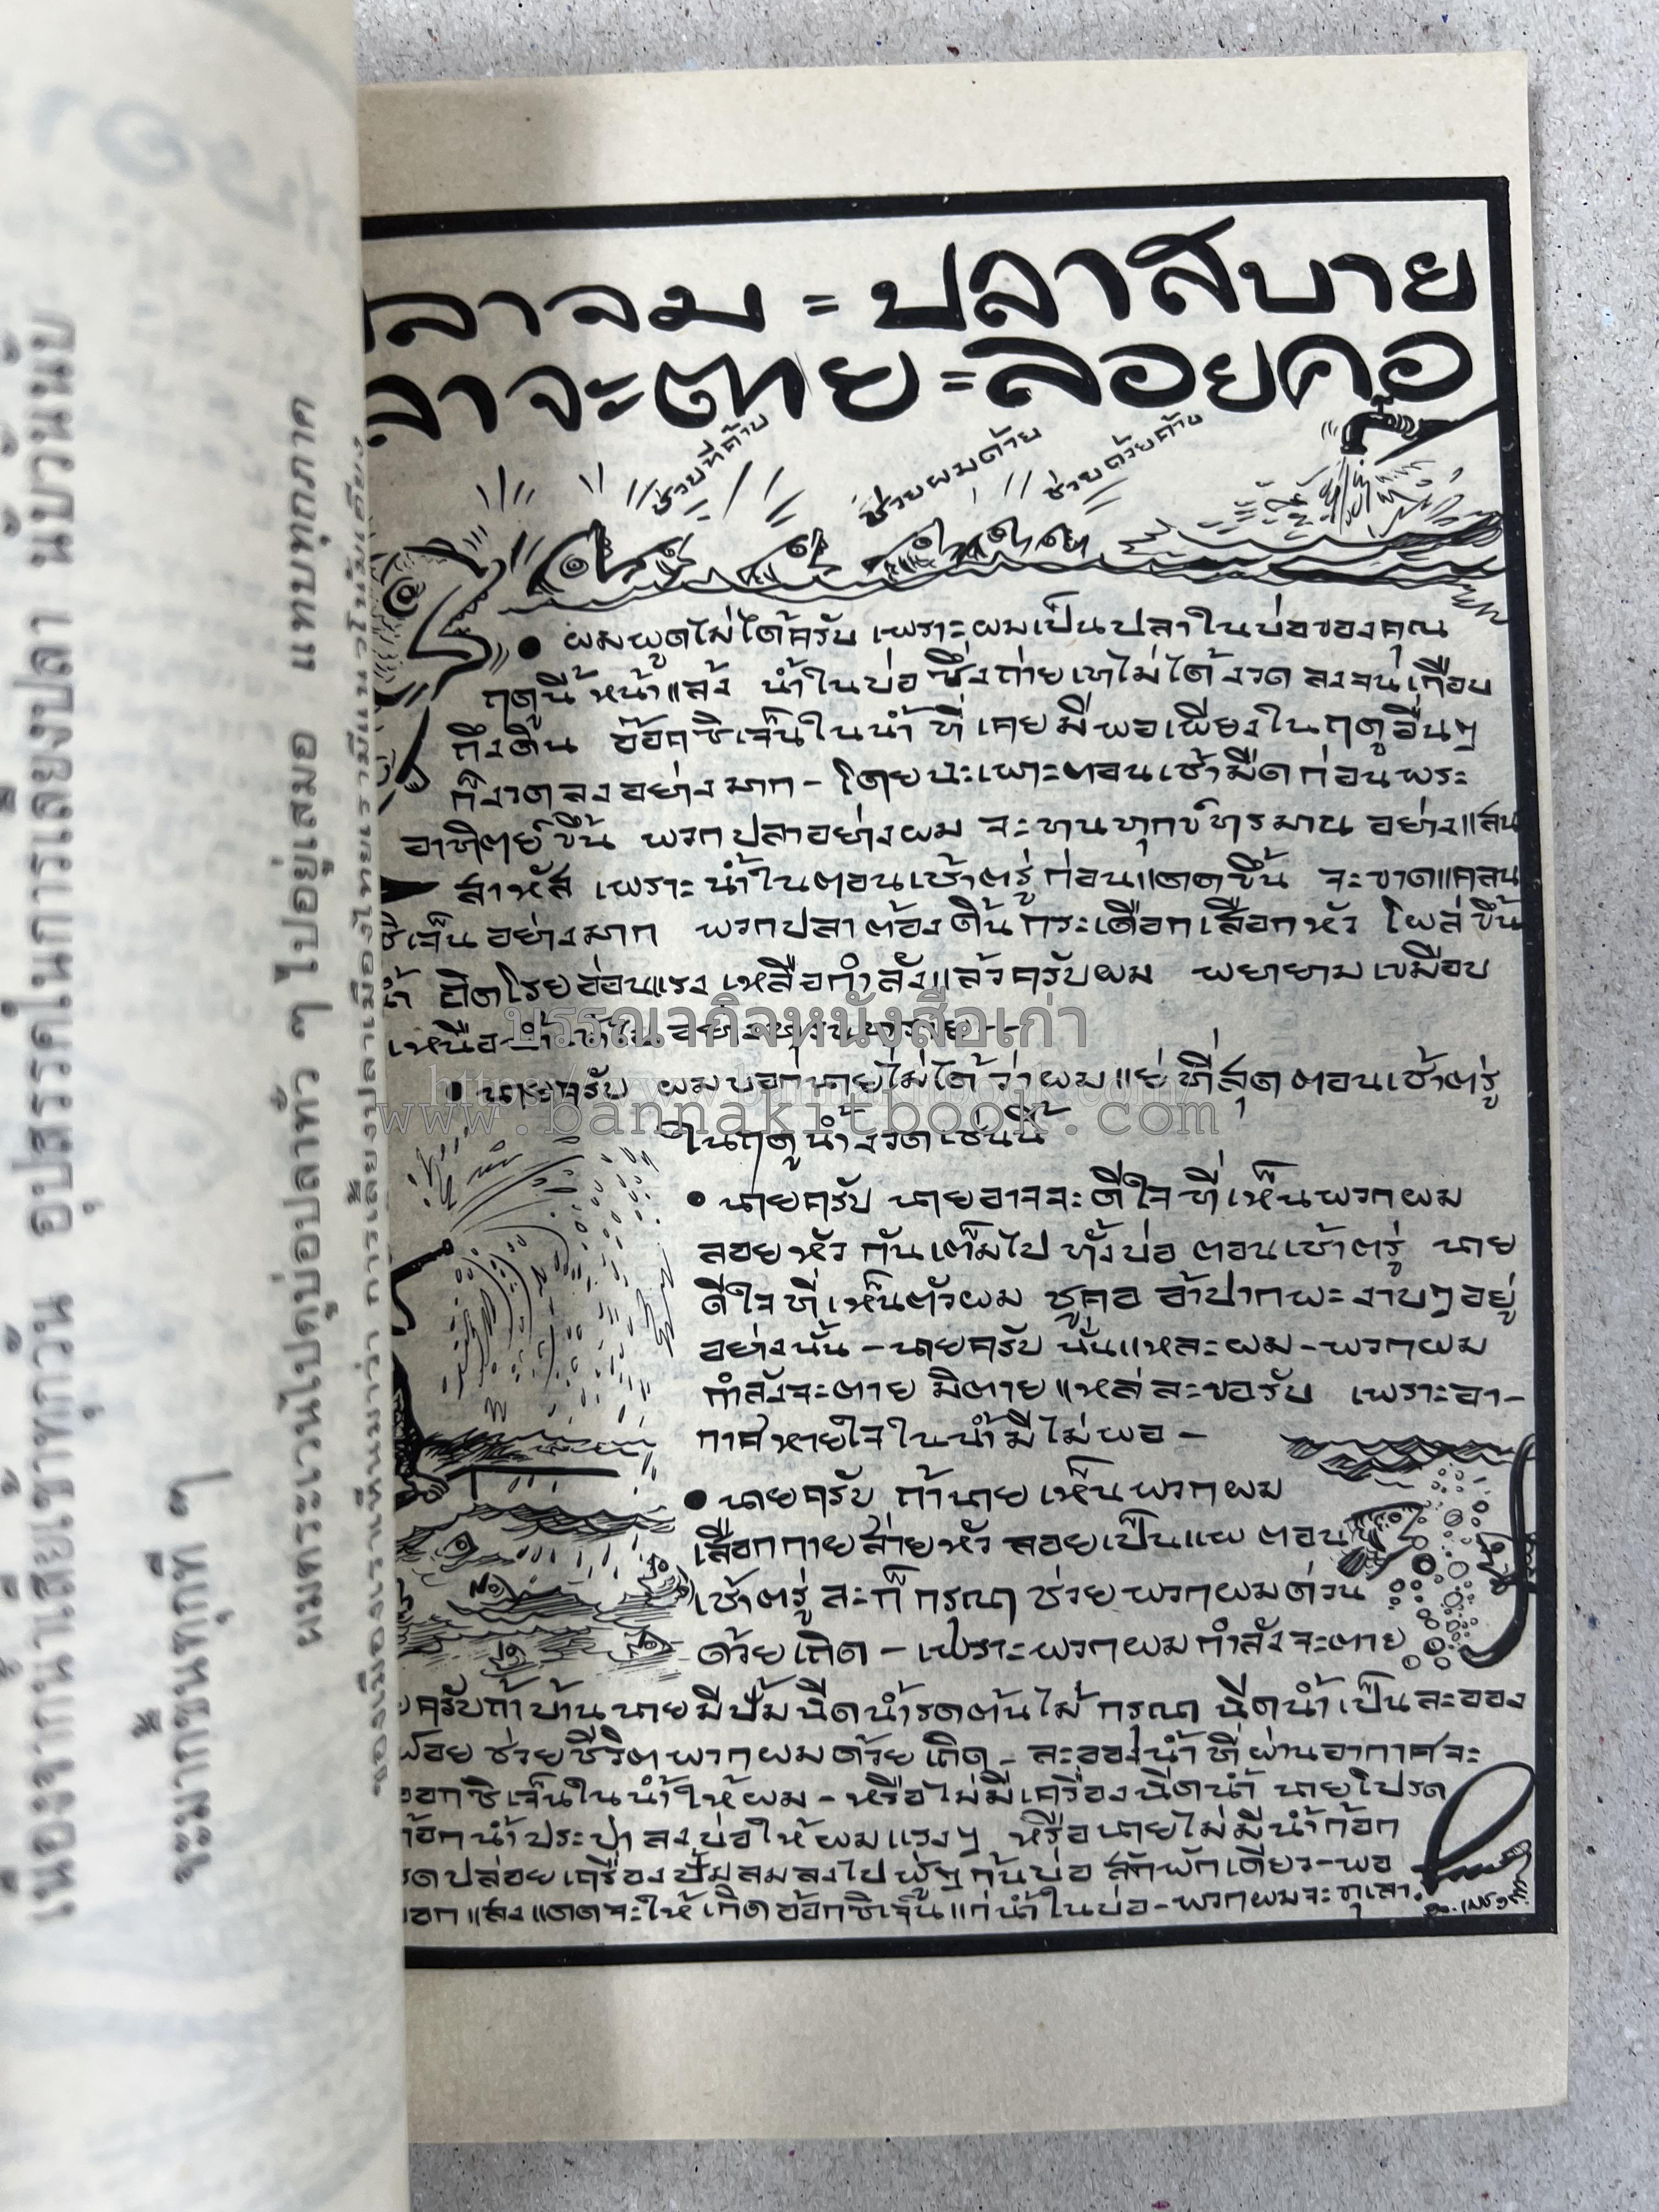 เนื่องจากน้ำเสียเข้าทุกวัน อุปสรรคในการเลี้ยงปลา นับวันนับ
จะมากขึ้นทุกที ๆ
ผมทระเวนไปดูบ่อปลาทั่ว ๆ ไปอยู่เสมอ แทบทุกภาค
ของเมืองเราเห็นมาว่า การเลี้ยงปลาเมืองไทยเรามีแนวโน้ม
ลาจม = ปลาสบาย
ลาจะตาย = ลอยคอ
ช่วยทีค้าบ
ช่วยผมด้วย
ช่วยด้วยค้าบ
• ผมพูดไม่ได้ครับ เพราะผมเป็นปลาในบ่อของคุณ
ฤดูนี้ หน้าแล้ง น้ำในบ่อ ซึ่งถ่ายเทไม่ได้งวด ลงจนเกือบ
ถึงดิน อ๊อคซิเจ็นในน้ำ ที่เคยมีพอเพียงในฤดูอื่นๆ
ก็งวดลงอย่างมาก - โดยฉะเพาะตอนเช้ามืดก่อนพระ
อาทิตย์ขึ้น พวกปลาอย่างผม จะทนทุกข์ทรมาน อย่างแสน
สาหัส เพราะน้ำในตอนเช้าตรู่ก่อนแดดขึ้น จะขาดแคลน
ซิเจ็นอย่างมาก พวกปลาต้องดิ้นกระเดือกเสือกหัว โผล่ขึ้น
น้ำ อิดโรยอ่อนแรง เหลือกำลังแล้วครับผม พยายามเขมือบ
เหนือน้ำ
บรรณากิจหนังสือเก่า
• นายครับ ผมบอกนายไม่ได้ ว่าผมแย่ที่สุด ตอนเช้าตรู่
www.bannakitbook.com
ในฤดูน้ำงวดเช่นนี้
• นายครับ นายอาจจะดีใจ ที่เห็นพวกผม
ลอยหัว กันเต็มไป ทั้งบ่อ ตอนเช้าตรู่ นาย
ดีใจ ที่เห็นตัวผม ชูคอ อ้าปากพะงาบๆอยู่
อย่างนั้น - นายครับ นั่นแหละผม - พวกผม
กำลังจะตาย มิตายแหล่ละขอรับ เพราะอา-
กาศหายใจในน้ำมีไม่พอ -
• นายครับ ถ้านายเห็นพวกผม
เสือกกายส่ายหัว ลอยเป็นแพ ตอน
เช้าตรู่ ละก็ กรุณา ช่วยพวกผมด่วน
ด้วยเถิด - เพราะพวกผมกำลังจะตาย
ยครับถ้าบ้านนายมีปั๊มฉีดน้ำรดต้นไม้ กรุณา ฉีดน้ำเป็นละออง
ฝอย ช่วยชีวิตพวกผมด้วยเถิด - ละอองน้ำที่ผ่านอากาศจะ
ออกซิเจ็นในน้ำให้ผม - หรือไม่มีเครื่องฉีดน้ำ นายโปรด
ก้อกน้ำประปา ลงบ่อให้ผมแรงๆ หรือนายไม่มีน้ำก้อก
รดปล่อยเครื่องปั๊มลมลงไป ฟู่ๆก้นบ่อ สักพักเดียว - พอ
ออกแสงแดดจะให้เกิดอ้อกซิเจ็นแก่น้ำในบ่อ - พวกผมจะทุเลา